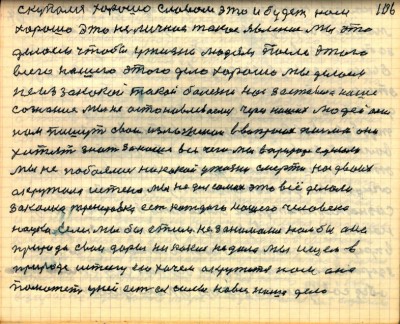 скупался хорошо словом это и будет нам 106
хорошо это не личное такое явление мы это
делаем чтобы у жизни людям после этого
всего нашего этого дело хорошо мы делаем
не из за какой такой болезни нас заставило наше
сознание мы не остановлеваему через наших людей они
нам пишут свои изложении в вопросах жизни они
хитят знать за наше все чего мы в природе сделали
мы не побоялись никакой ужасни смерти на двоих
окружала истена мы не для самих это всё делали
закалка тринировка есть каждого нашего человека
наука если мы бы етим не занимались нам бы она
природа свои дары никаких не дала мы ищем в
природе истину его хочем окружать нам она
поможет у ней есть силы новое наше дело